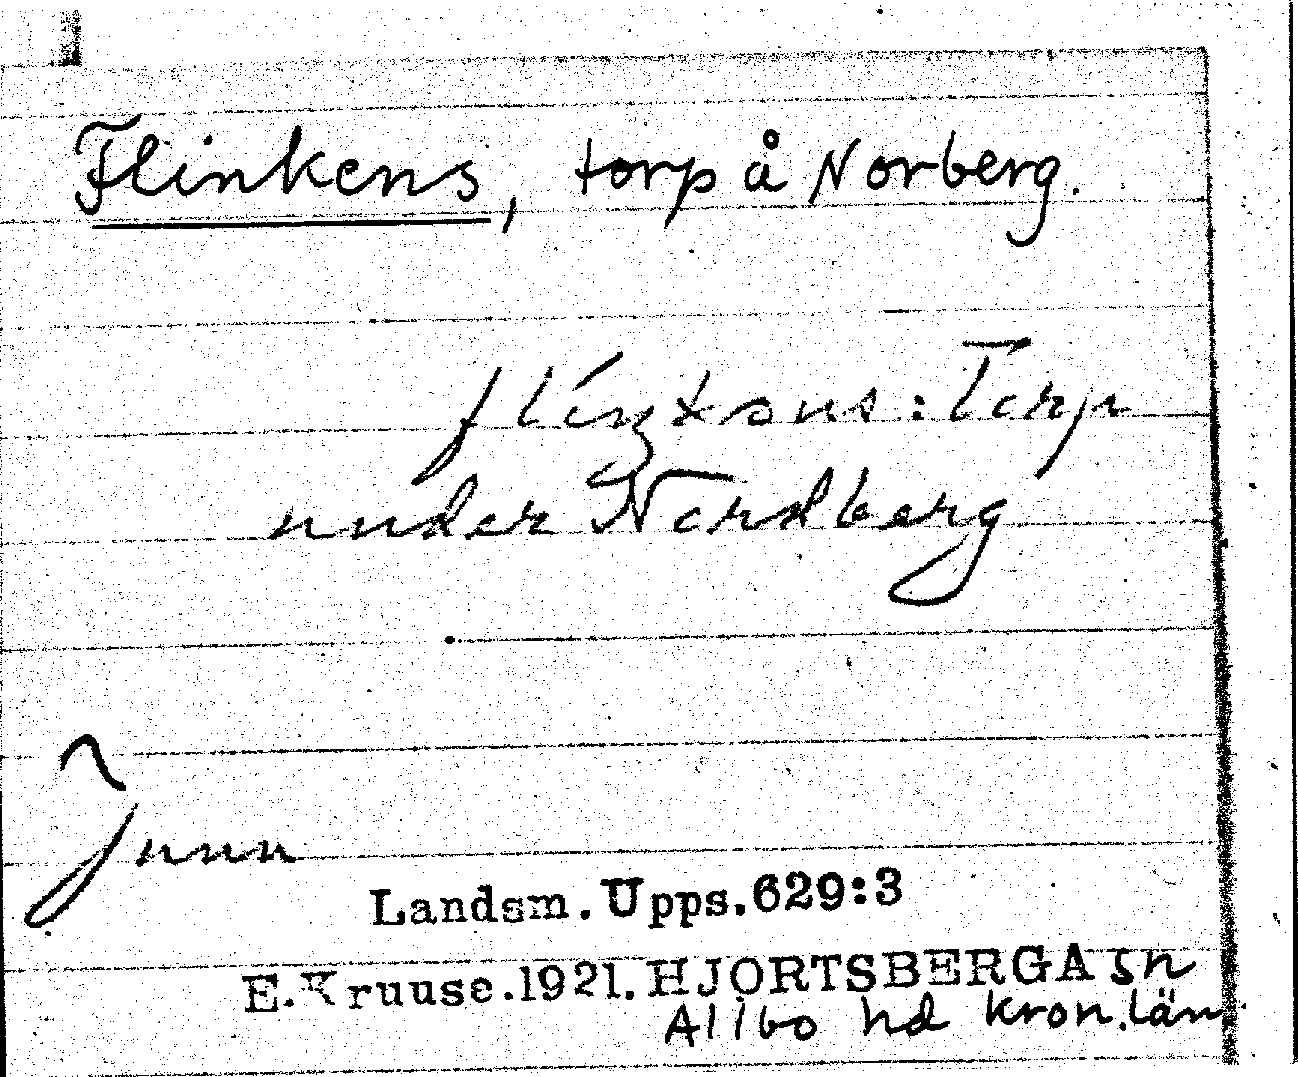 Flinkens, torp å Norberg.
: Torp
under Nordberg
Landsm. Upps. 629:3
E. Kruuse. 1921. HJORTSBERGA sn
Allbo hd Kron. län